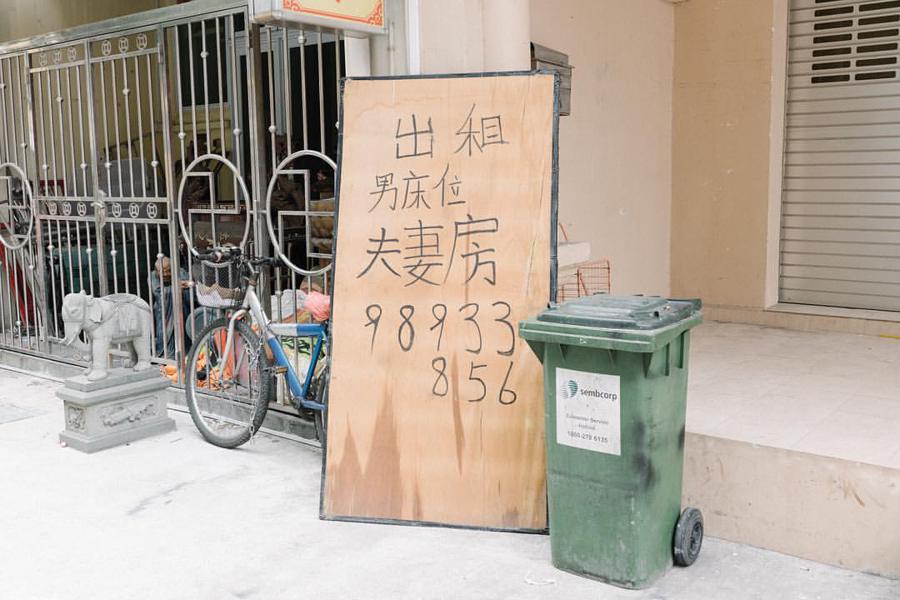 出租
男床位
夫妻房
98933
856
sembcorp
Customer Service
Hotline
1800-278 6135